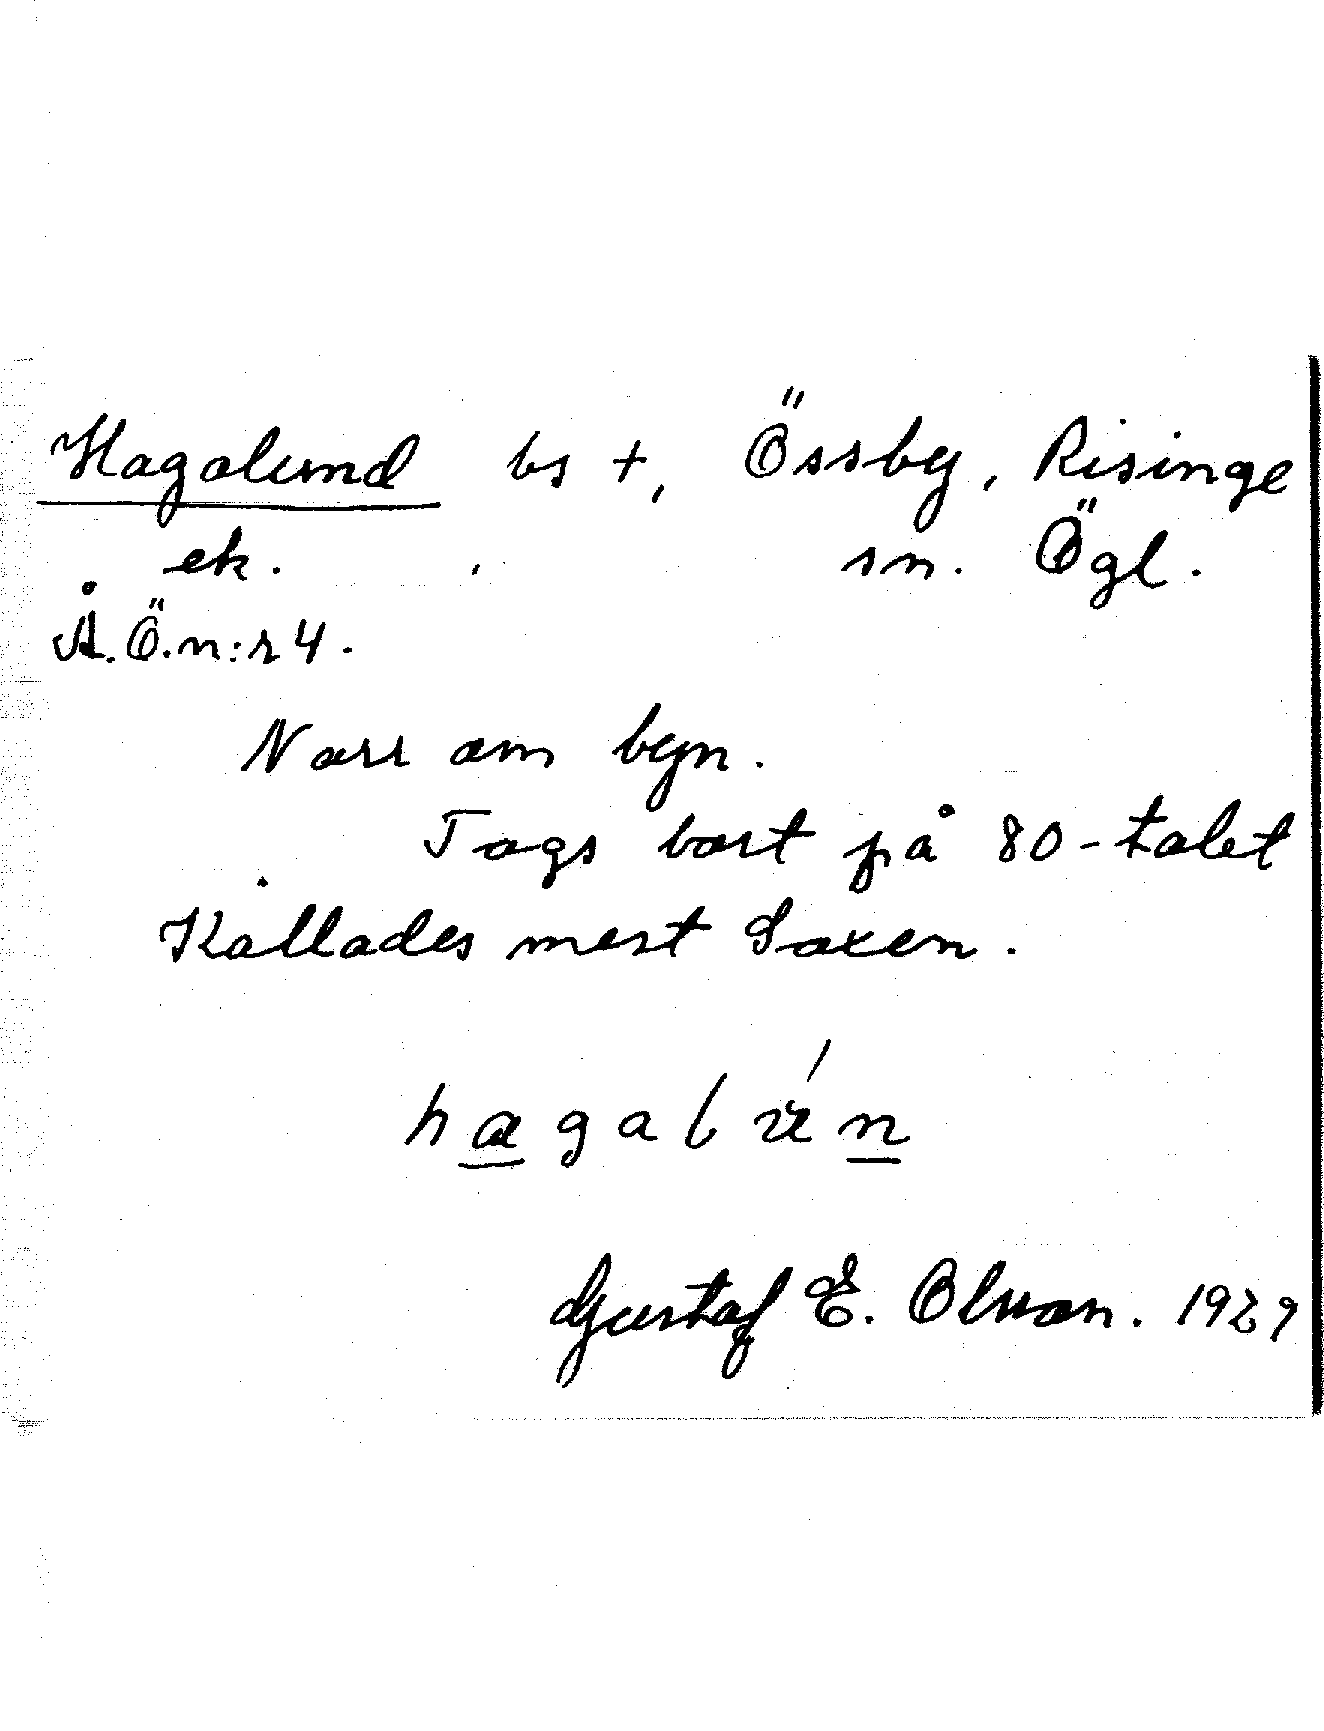 Hagalund bs +, Össby, Risinge
ek. sn. Ögl.
Å.Ö.n:r 4.
Norr om byn.
Togs bort på 80-talet
Kallades mest Saxen.
hagalún
Gustaf E. Olsson. 1929